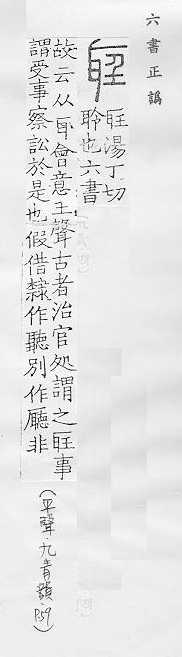 六書正譌
𦔻湯丁切
聆也六書
故云从耳會意王聲古者治官処謂之𦔻事
謂受事察訟於是也假借隸作聽別作廳非
（平聲九青韻P.59）